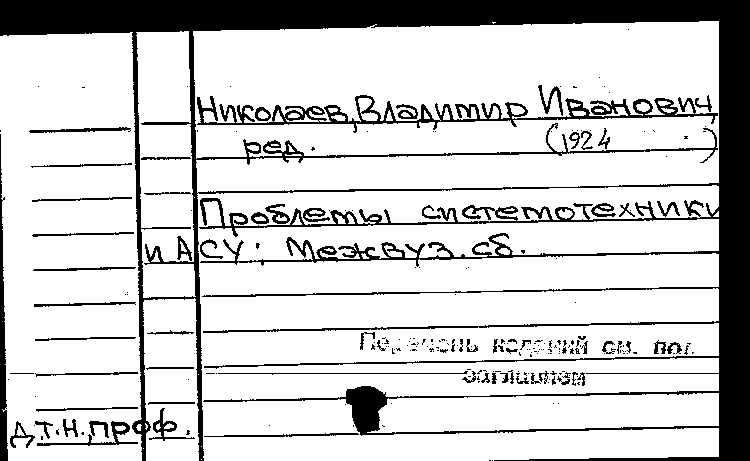 Николаев, Владимир Иванович,
ред.
(1924 )
Проблемы системотехники
и АСУ: Межвуз. сб.
Перечень изданий см. под
заглавием
д.т.н., проф.